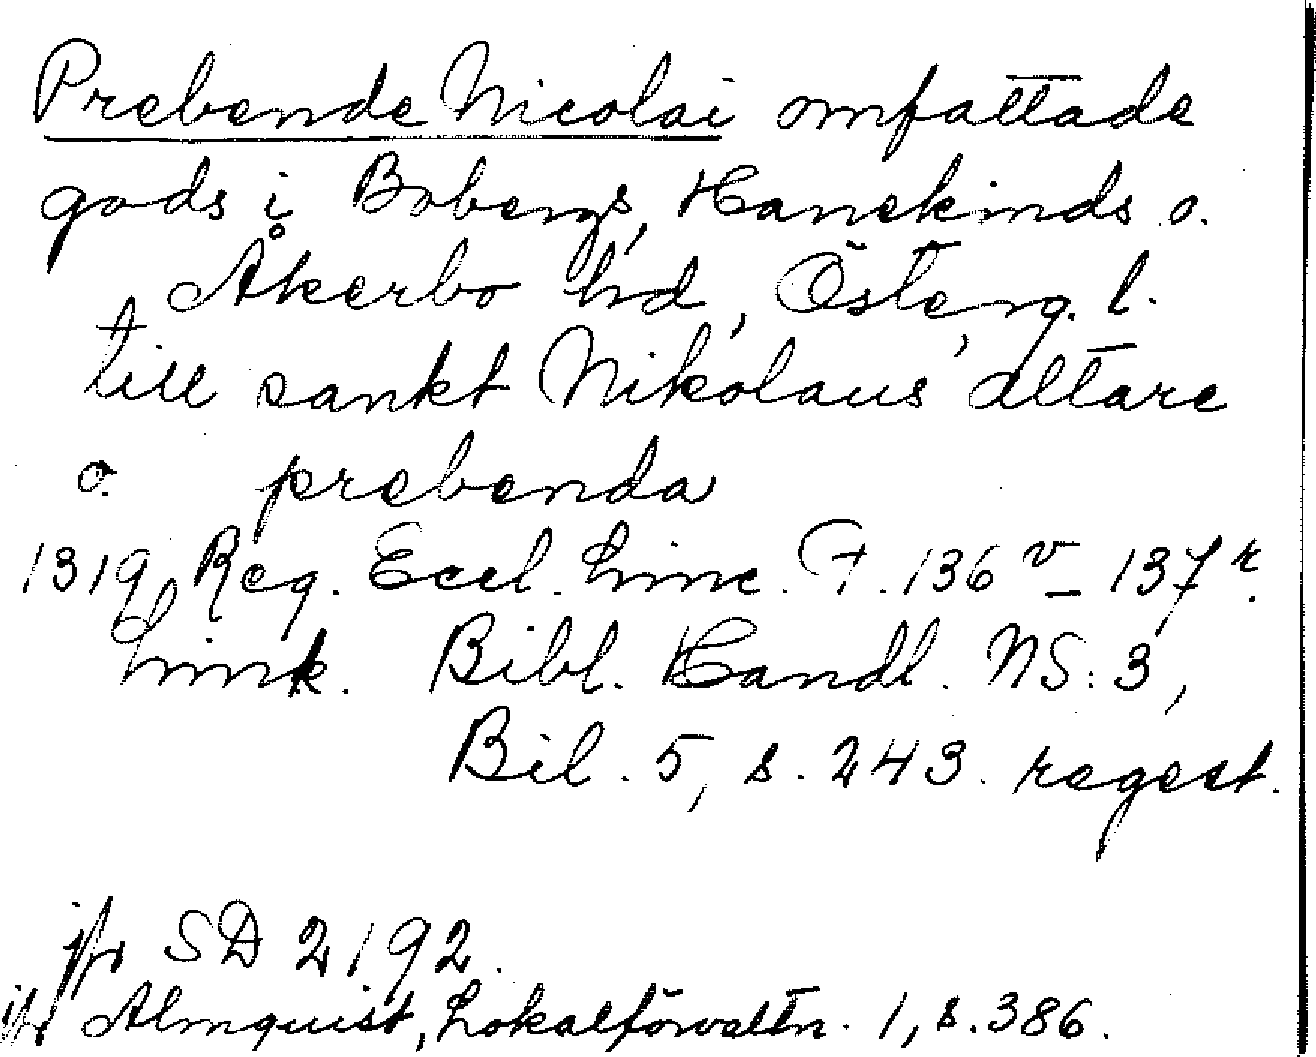 Prebende Nicolai omfattade
gods i Bobergs, Hanekinds o.
Åkerbo hd, Österg. l.
till sankt Nikolaus' altare
o. prebenda
1319 Reg. Eccl. Linc. F. 136 v – 137 r.
Link. Bibl. Handl. NS: 3,
Bil. 5, s. 243. regest.
jfr SD 2192.
jfr Almquist, Lokalförvaltn. 1, s. 386.